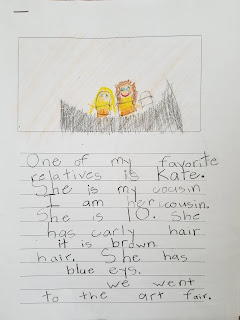 One of my favorite
relatives is Kate.
She is my cousin
I am her cousin.
She is 10. She
has curly hair
it is brown
hair. She has
blue eys.
we went
to the art fair.